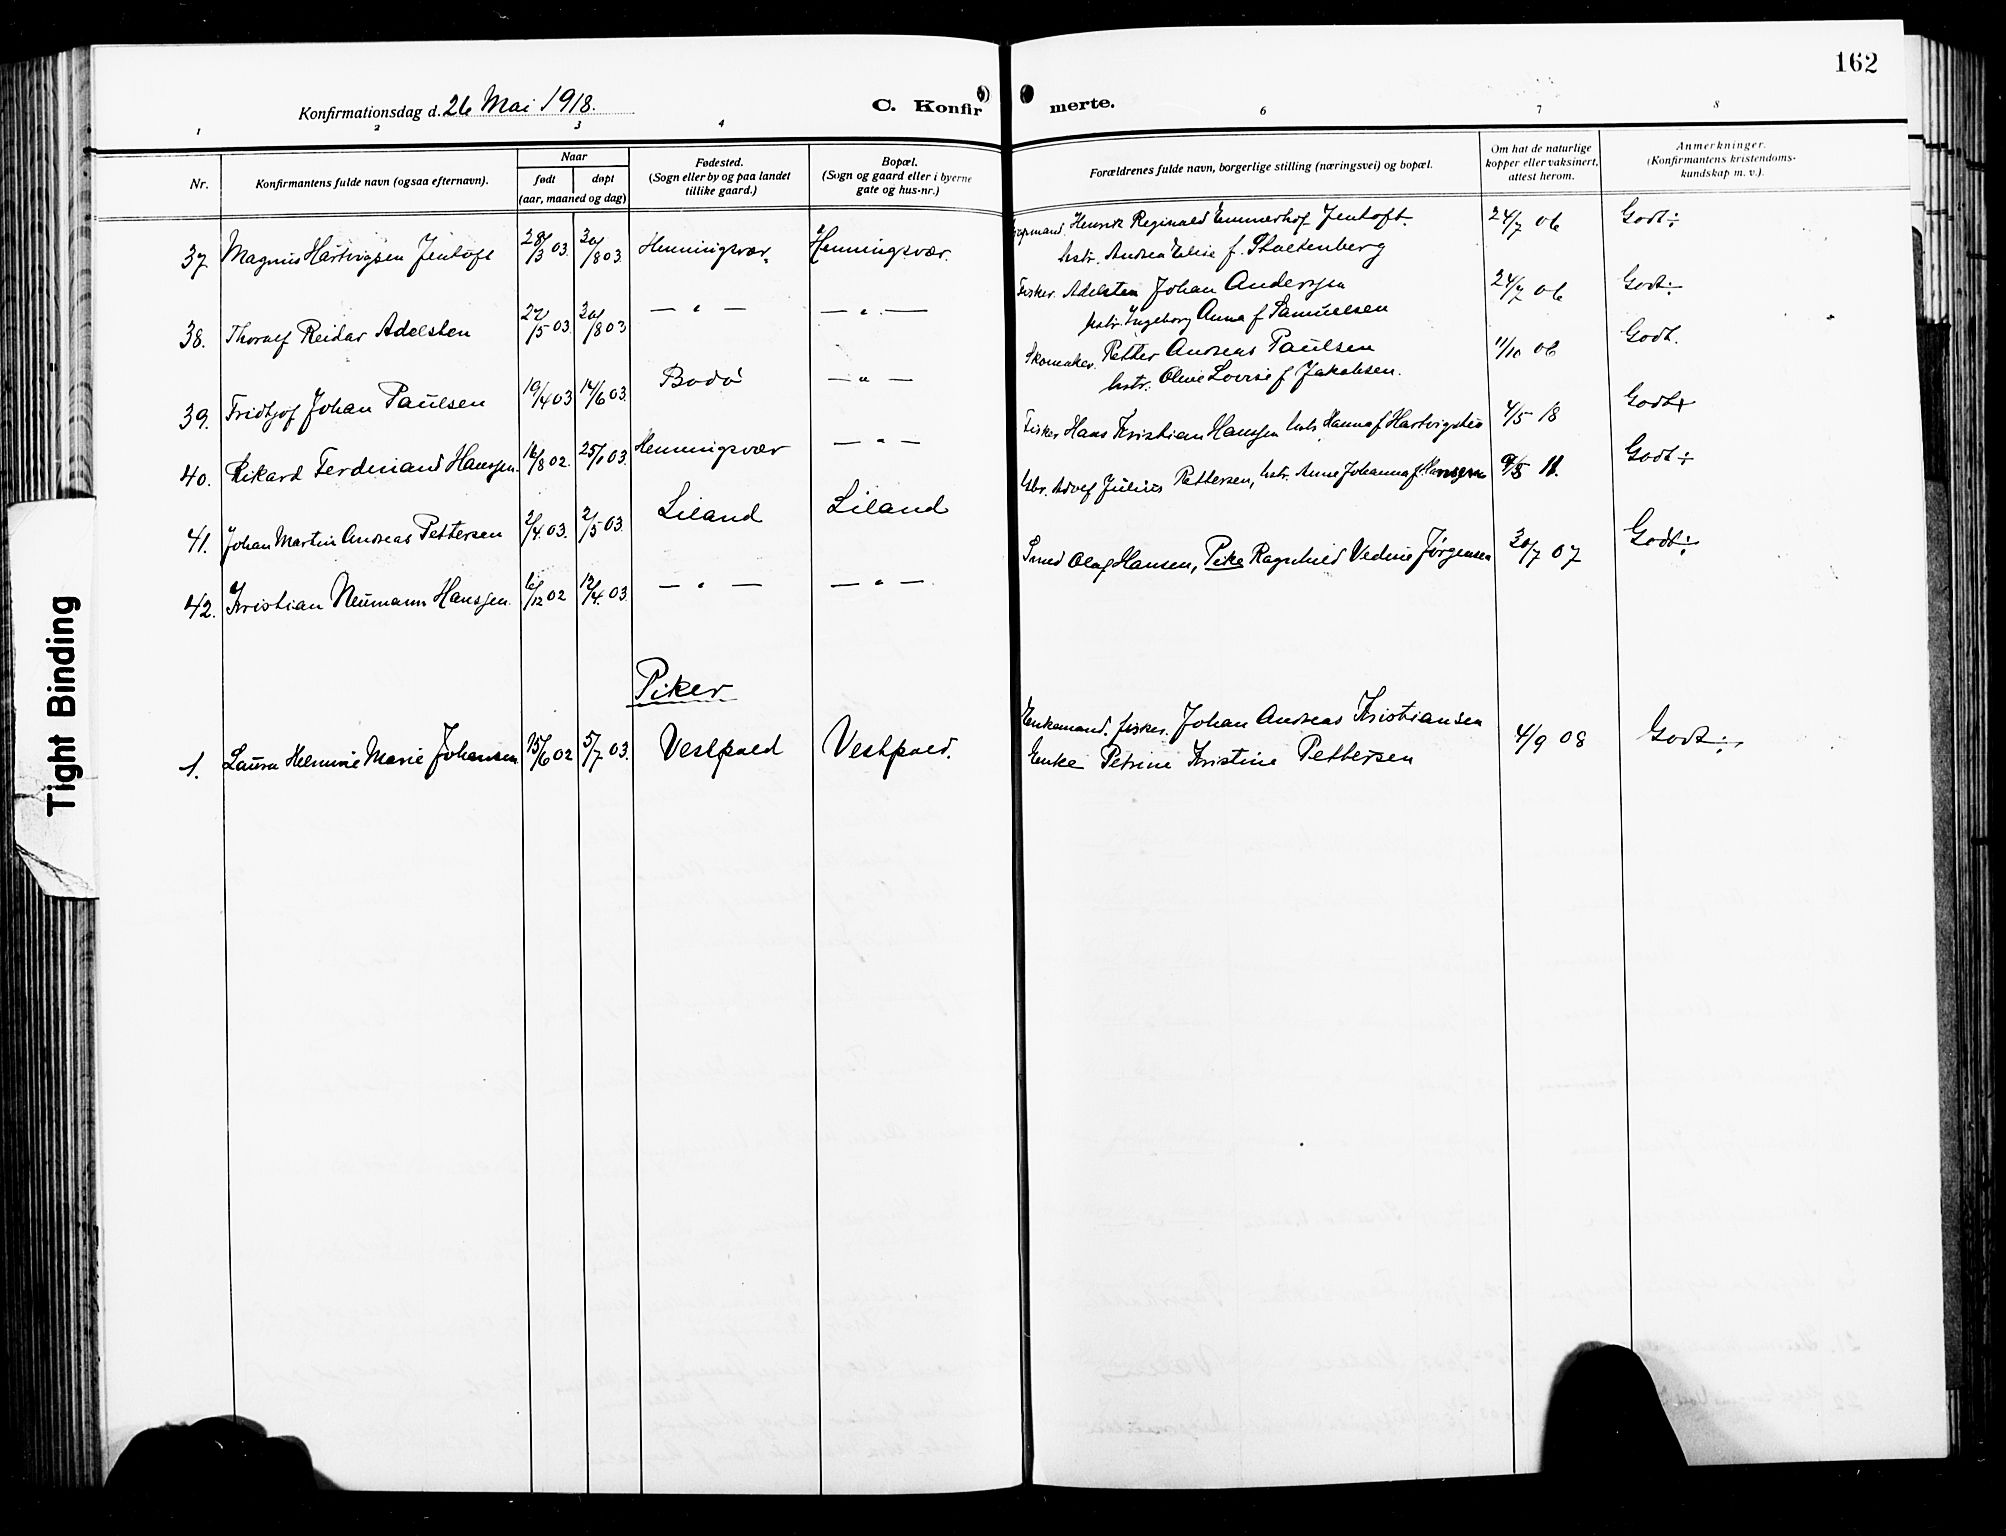 162
Konfirmationsdag d. 26 Mai 1918.
C. Konfirmerte.
1 2 3 4 5 6 7 8
Nr.
Konfirmantens fulde navn (ogsaa efternavn).
Naar
født
døpt
(aar, maaned og dag)
Fødested.
(Sogn eller by og paa landet
tillike gaard.)
Bopæl.
(Sogn og gaard eller i byerne
gate og hus-nr.)
Forældrenes fulde navn, borgerlige stilling (næringsvei) og bopæl.
Om hat de naturlige
kopper eller vaksinert,
attest herom.
Anmerkninger.
(Konfirmantens kristendoms-
kundskap m. v.).
37. Magnus Hartvigsen Jentoft 28/3 03. 30/8 03 Henningsvær. Henningsvær. Henrik Reginald Emmerhof Jentoft. 24/7 06 Godt÷
hstr. Andrea Elise f. Stoltenberg
38. Thoralf Reidar Adelsten 22/5 03 30/8 03 — " — — " — Fisker Adelsten Johan Andersen 24/7 06 Godt÷
hstr. Ingeborg Anna f Samuelsen
39. Fridtjof Johan Paulsen 19/4 03 14/6 03. Bodø — " — Skomaker. Petter Andreas Paulsen 11/10 06 Godt.
hstr. Oline Lovise f Jakobsen.
40. Rikard Ferdinand Hanssen. 16/8 02. 25/1 03. Henningsvær — " — Fisker Hans Kristian Hanssen hstr Hanna f Hartvigsen 4/5 18 Godt+
41. Johan Martin Andreas Pettersen 2/4 03. 2/5 03. Liland Liland Gbr. Adolf Julius Pettersen, hstr. Anne Johanna f. Hansen 11. Godt÷
42. Kristian Neumann Hanssen. 6/12 02 12/4. 03. — " — — " — Smed Olaf Hansen, Pike Ragnhild Vedine Jørgensen 30/7 07 Godt÷
Piker
1. Laura Helmine Marie Johansen 15/6 02 5/7 03. Vestpold Vestpold. Enkemand. fisker. Johan Andreas Kristiansen 4/9 08 Godt÷
Enke Petrine Kristine Pettersen
Tight Binding